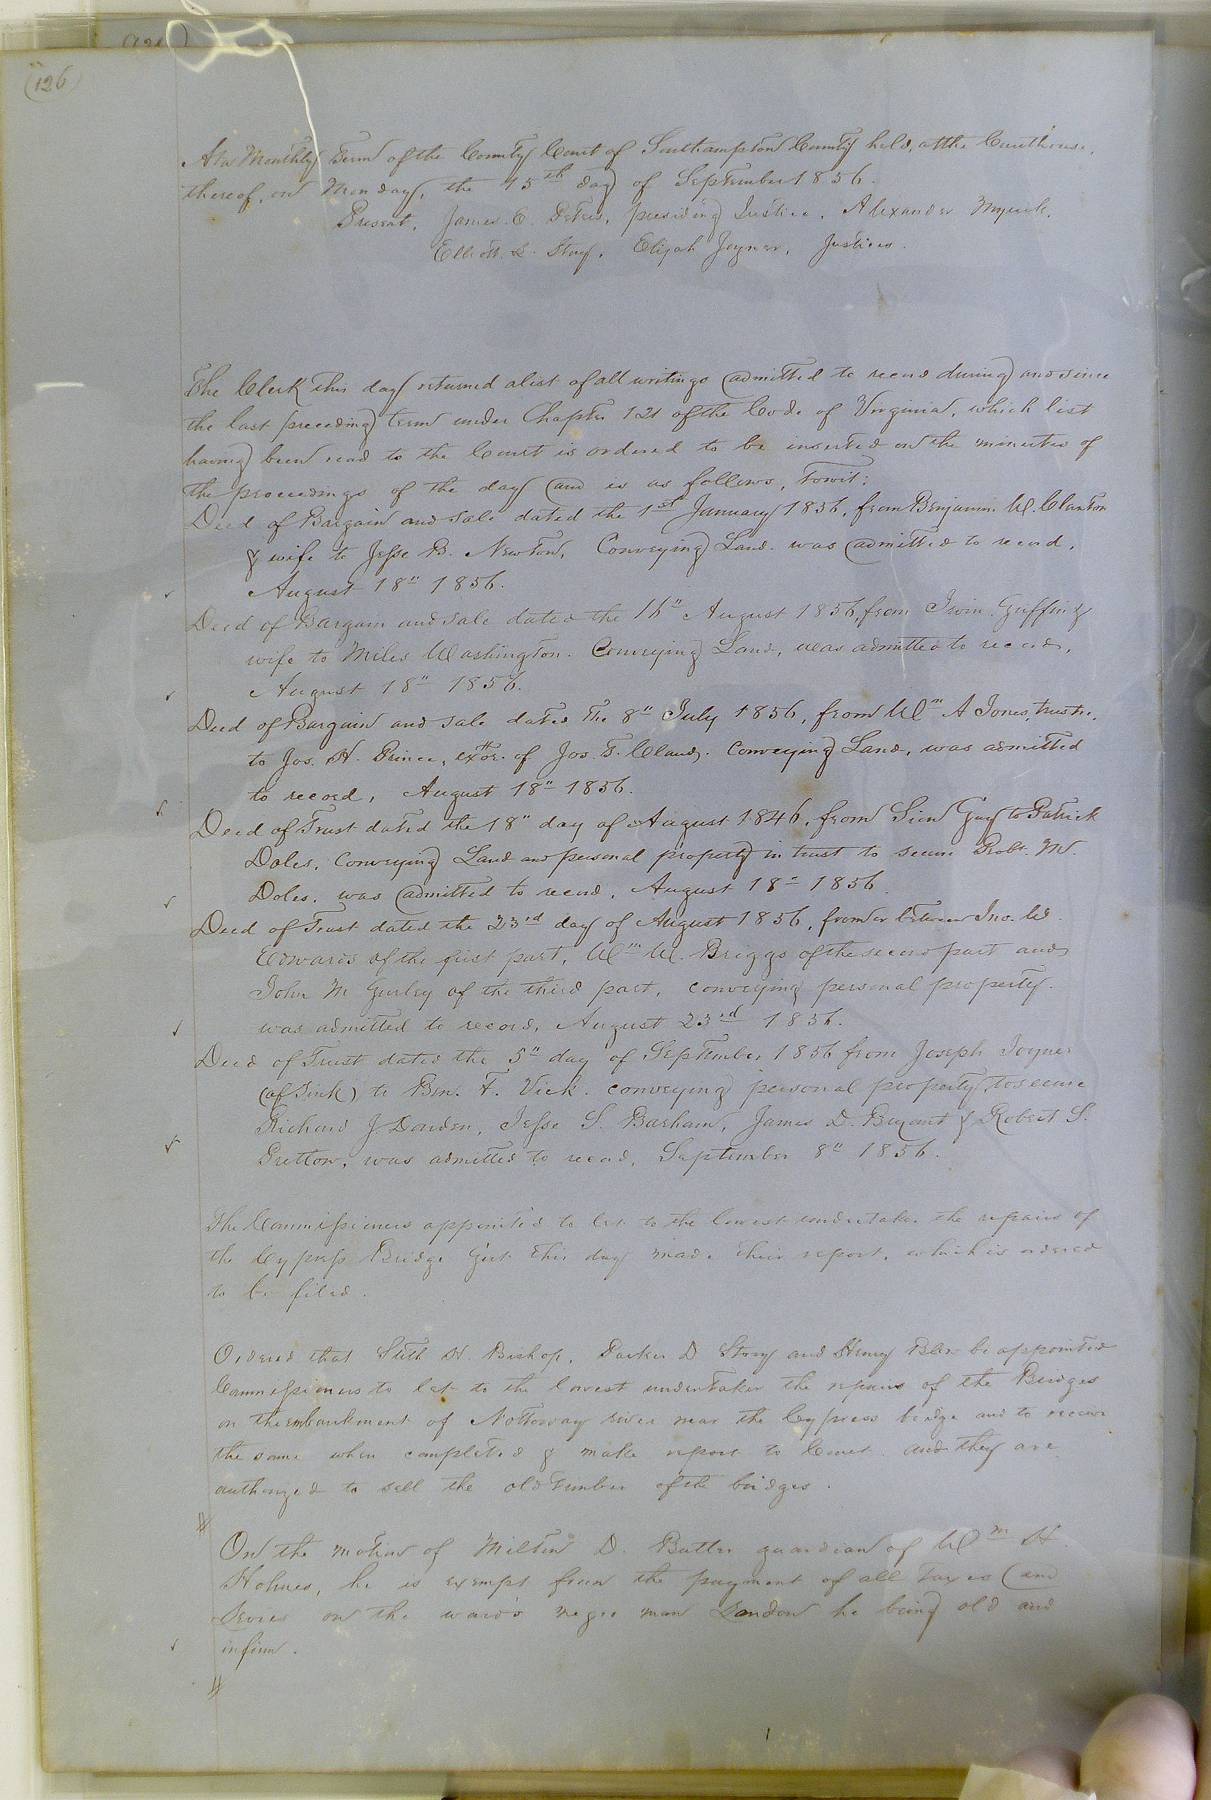 (126)
At a Monthly Term of the County Court of Southampton County held, at the Courthouse,
thereof, on Monday, the 15th day of September 1856.
Present, James C. presiding Justice, Alexander Myrick,
Elliott L. Story, Elijah Joyner, Justices.
The Clerk this day returned a list of all writings admitted to record during and since
the last preceding term under Chapter 121 of the Code of Virginia, which list
having been read to the Court is ordered to be inserted on the minutes of
the proceedings of the day and is as follows, Towit:
Deed of Bargain and Sale dated the 1st January 1856, from Benjamin W. Claxton
& wife to Jesse B. Newton, Conveying Land. was admitted to record,
August 18" 1856.
Deed of Bargain and sale dated the 16" August 1856, from Irwin Griffin &
wife to Miles Washington. Conveying Land, was admitted to record,
August 18" 1856.
Deed of Bargain and sale dated the 8" July 1856, from Wm A Jones, trustee,
to Jos. H. Prince, exor. of Jos. T. Claud. Conveying Land, was admitted
to record, August 18" 1856.
Deed of Trust dated the 18" day of August 1846, from Guy to Patrick
Doles, Conveying Land and personal property in trust to secure Robt. W.
Doles. was admitted to record, August 18" 1856.
Deed of Trust dated the 23rd day of August 1856, from or between Jno. W.
Edwards of the first part, Wm W. Briggs of the second part and
John M Gurley of the third part, conveying personal property.
was admitted to record, August 23rd 1856.
Deed of Trust dated the 5" day of September 1856 from Joseph Joyner
to Ben. F. Vick. conveying personal property, to secure
Richard J. Darden, Jesse S. Barham, James D. Bryant & Robert S.
Pretlow, was admitted to record, September 8" 1856.
The Commissioners appointed to let to the lowest undertaker the repairs of
the Cypress Bridge &ct this day made their report, which is ordered
to be filed.
Ordered that Seth H. Bishop, Parker D Story and Henry Blow be appointed
Commissioners to let to the lowest undertaker the repairs of the Bridges
on the embankment of Nottoway river near the Cypress bridge and to receive
the same when completed & make report to Court and they are
authorized to sell the old timber of the bridges.
On the motion of Milton D. Butler guardian of Wm H.
Holmes, he is exempt from the payment of all taxes and
Levies on the ward's negro man Landon he being old and
infirm.